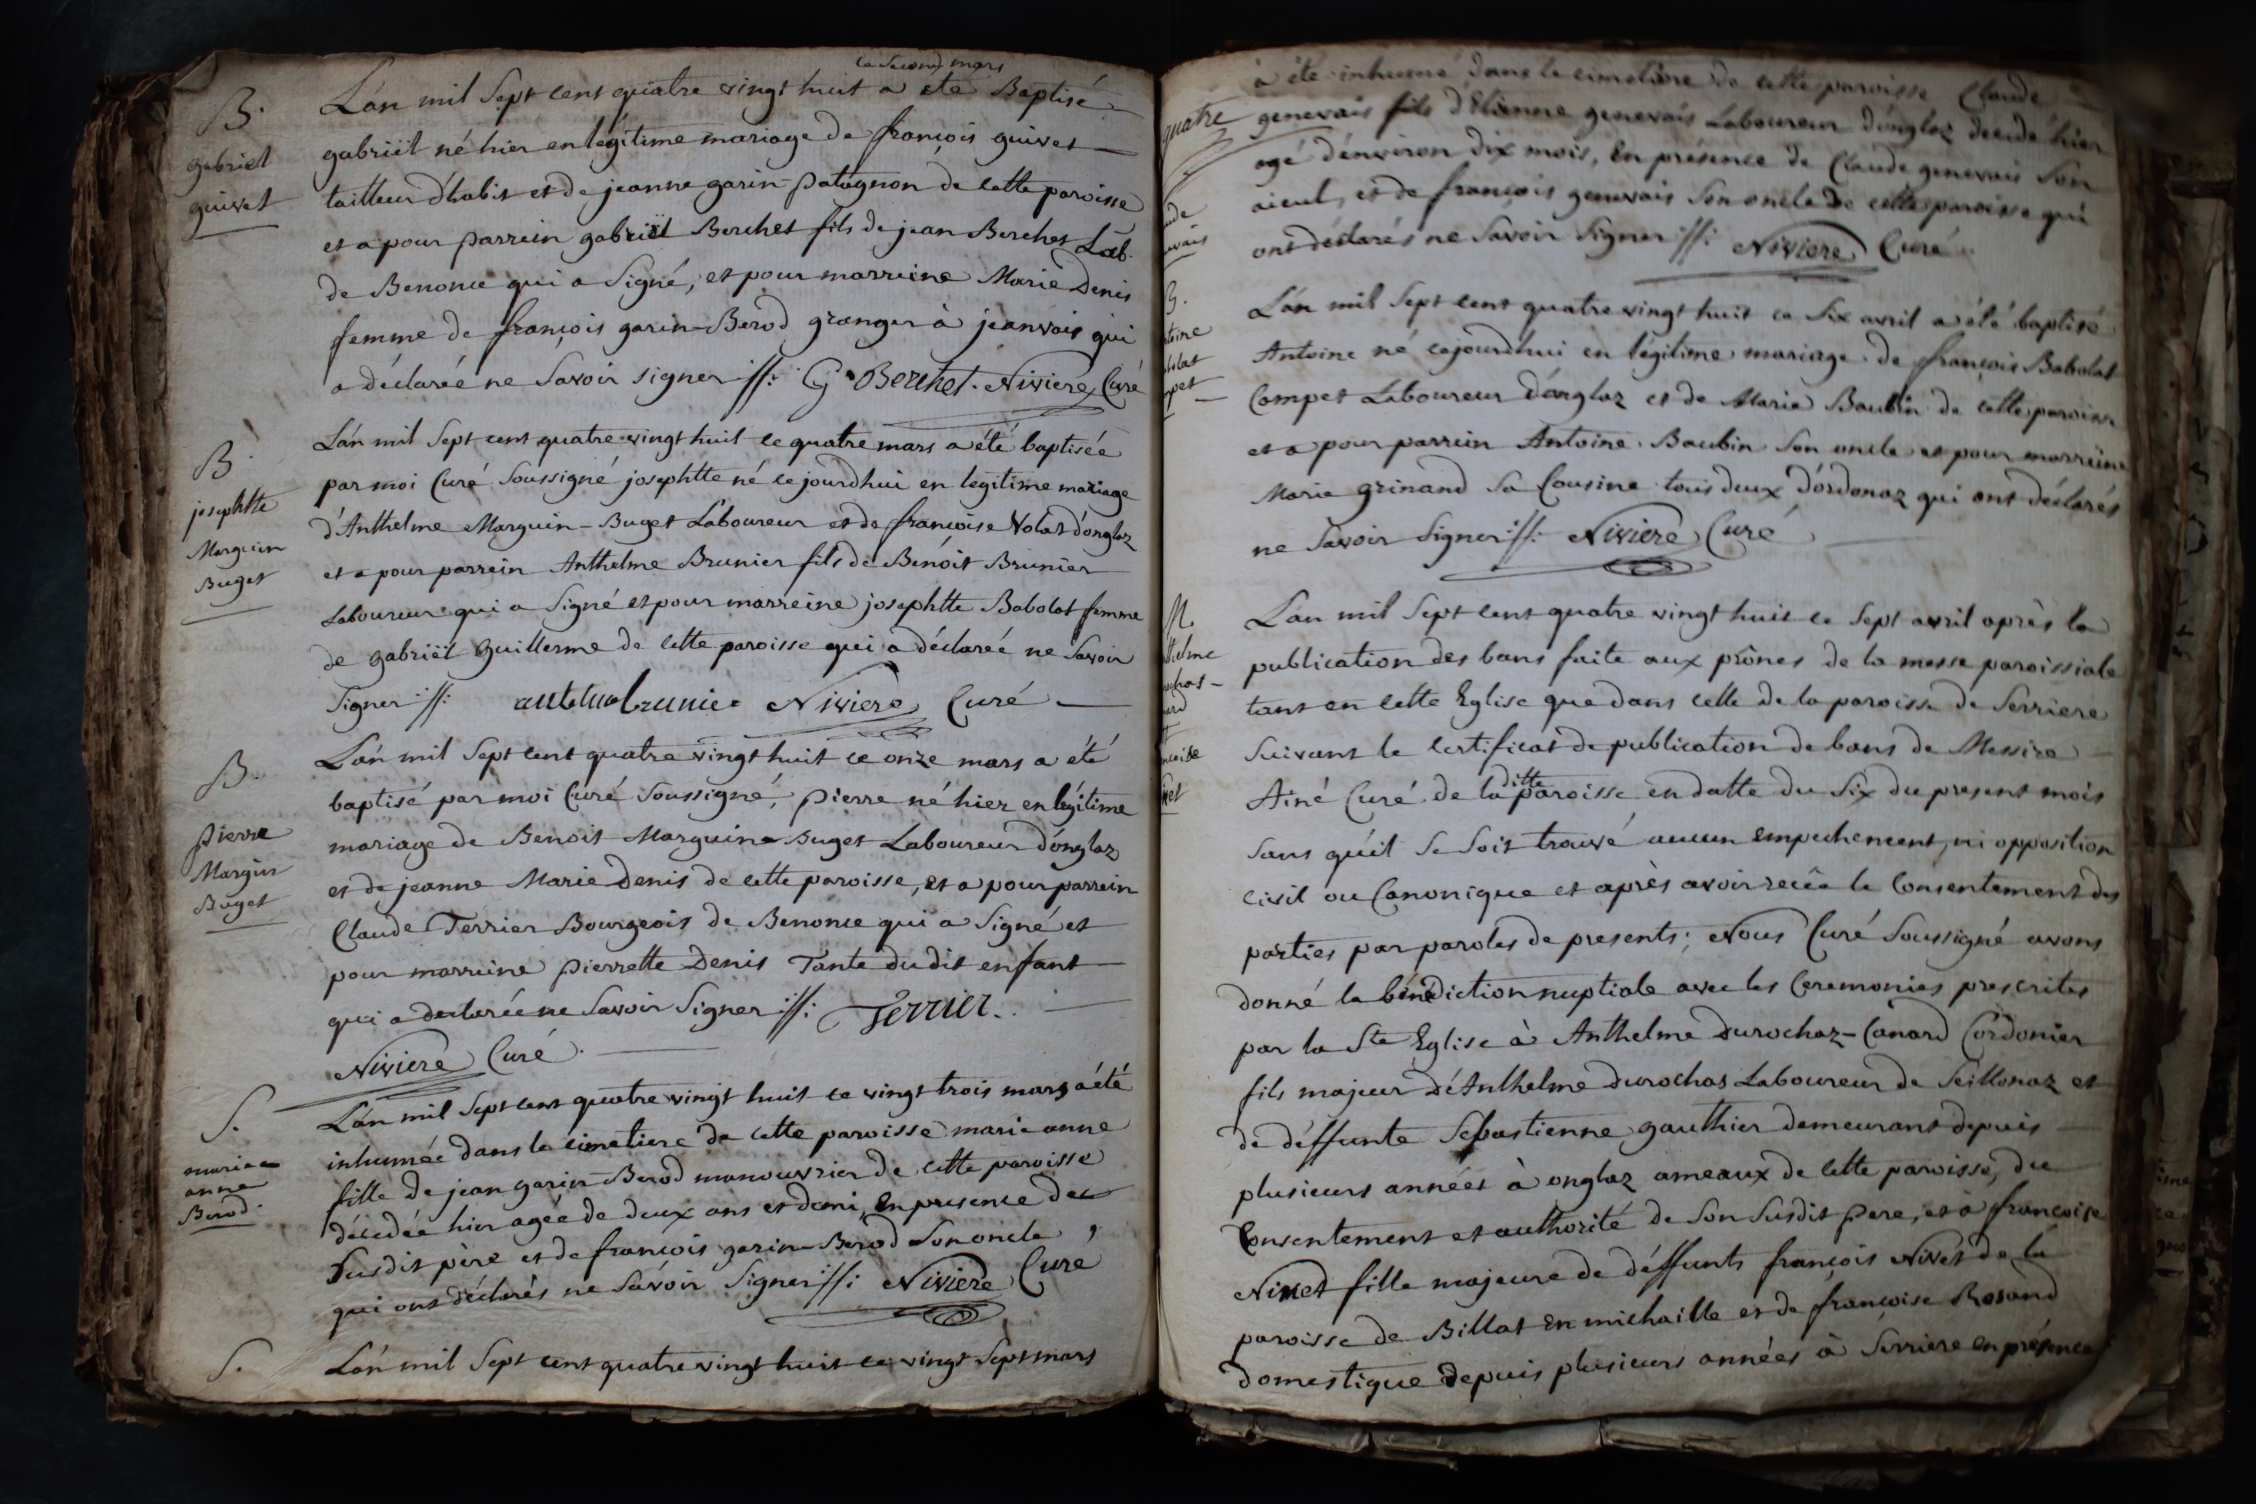 ce Second mars
B.
gabriel
guivet
L'an mil Sept cent quatre vingt huit a eté Baptisé
gabriël né hier en légitime mariage de françois guivet
tailleur d'habit et de jeanne garin-patagnon de cette paroisse
et a pour parrein gabriël Berchet fils de jean Berchet Lab.
de Benonce qui a Signé, et pour marreine Marie Denis
femme de françois garin-Berod granger à jeanvais qui
a déclarée ne Savoir signer :/: G Berchet. Niviere Curé
B.
josephtte
Marguin
Buget
L'an mil Sept cent quatre vingt huit ce quatre mars a été baptisée
par moi Curé Soussigné josephtte né ce jourdhui en legitime mariage
d'Anthelme Marguin-Buget Laboureur et de françoise Volat d'onglaz
et a pour parrein Anthelme Brunier fils de Benoit Brunier
Laboureur qui a Signé et pour marreine josephtte Babolat femme
de gabriël guillerme de cette paroisse qui a déclarée ne Savoir
Signer :/: Niviere Curé
B.
pierre
Margùin
Buget
L'an mil Sept cent quatre vingt huit ce onze mars a été
baptisé par moi Curé Soussigné, pierre né hier en légitime
mariage de Benoit Marguin-Buget Laboureur d'onglaz
et de jeanne Marie Denis de cette paroisse, et a pour parrein
Claude Terrier Bourgeois de Benonce qui a Signé et
pour marreine pierrette Denis Tante du dit enfant
qui a declarée ne Savoir Signer :/: Terrier.
Niviere Curé.
S.
marie
anne
Berod.
L'an mil Sept cent quatre vingt huit ce vingt trois mars a été
inhumée dans le cimetiere de cette paroisse marie anne
fille de jean garin-Berod manouvrier de cette paroisse
décedée hier agée de deux ans et demi, En presence de
Susdit père et de françois garin-Berod Son oncle,
qui ont déclarés ne Savoir Signer :/: Niviere Curé
S.
L'an mil Sept cent quatre vingt huit ce vingt Sept mars
quatre
à été inhumé dans le cimetière de cette paroisse Claude
genevais fils d'Etienne genevais Laboureur d'onglaz decedé hier
agé d'environ dix mois, En présence de Claude genevais Son
aieul, et de françois genevais Son oncle de cette paroisse qui
ont déclarés ne Savoir Signer :/: Niviere Curé
B.
L'an mil Sept cent quatre vingt huit ce Six avril a été baptisé
Antoine né cejourdhui en légitime mariage de françois Babolat
Compet Laboureur d'onglaz et de Marie Baubin de cette paroisse
et a pour parrein Antoine Baubin Son oncle et pour marreine
Marie grinand Sa Cousine tous deux d'ordonaz qui ont déclarés
ne Savoir Signer :/: Niviere Curé
M.
L'an mil Sept cent quatre vingt huit ce Sept avril après la
publication des bans faite aux prônes de la messe paroissiale
tant en cette Eglise que dans celle de la paroisse de Serriere
Suivant le certificat de publication de bans de Messire
Ainé Curé de la ditte paroisse en datte du Six du present mois
Sans qu'il Se Soit trouvé aucun empechement, ni opposition
civil ou Canonique et après avoir recüe le Consentement des
parties par paroles de presents; Nous Curé Soussigné avons
donné la bénédiction nuptiale avec les Ceremonies prescrites
par la Ste Eglise à Anthelme Durochaz-Canard Cordonier
fils majeur d'Anthelme durochas Laboureur de Seillonaz et
de déffunte Sebastienne gauthier demeurant depuis
plusieurs années à onglaz ameaux de cette paroisse, du
Consentement et authorité de Son Susdit Pere, et à françoise
Nivet fille majeure de déffunts françois Nivet de la
paroisse de Billat En michaille et de françoise Rosand
domestique depuis plusieurs années à Serriere en présence